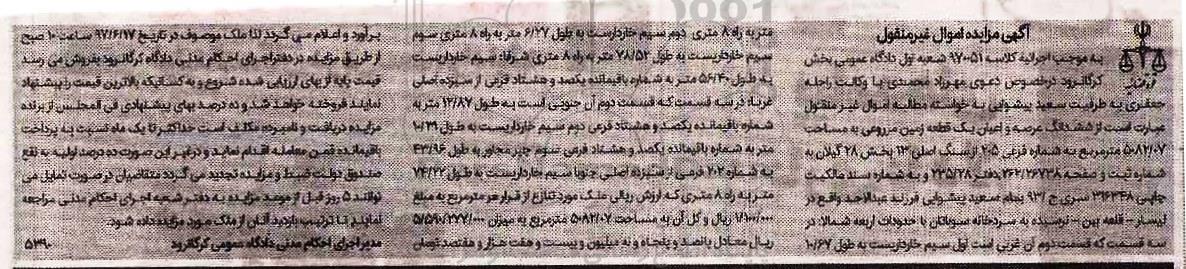 آگهی مزایده اموال غیرمنقول
به موجب اجرائیه کلاسه ۹۷۰۰۵۱ شعبه اول دادگاه عمومی بخش
کرگانرود درخصوص دعوی مهرزاد محمدی با وکالت راحله
جعفری به طرفیت سعید پیشوایی به خواسته مطالبه اموال غیر منقول
عبارت است از ششدانگ عرصه و اعیان یک قطعه زمین مزروعی به مساحت
۵۰۸۲/۰۷ مترمربع به شماره فرعی ۲۰۵ از سنگ اصلی ۱۳ بخش ۲۸ گیلان به
شماره ثبت و صفحه ۲۶۲/۲۶۷۳۸ دفتر ۲۳۵/۲۸ و به شماره سند مالکیت
چاپی ۳۱۶۳۴۸ سری ج /۹۳ بنام سعید پیشوایی فرزند عبدالاحد واقع در
لیسار – قلعه بین – نرسیده به سردخانه سوباتان با حدودات اربعه شمالا: در
سه قسمت که قسمت دوم آن غربی است اول سیم خارداریست به طول ۱۰/۶۷
متر به راه ۸ متری دوم سیم خارداریست به طول ۶/۲۷ متر به راه ۸ متری سوم
سیم خارداریست به طول ۷۸/۵۲ متر به راه ۸ متری شرقا: سیم خارداریست
به طول ۵۶/۴۰ متر به شماره باقیمانده یکصد و هشتاد فرعی از سیزده اصلی
غربا: در سه قسمت که قسمت دوم آن جنوبی است به طول ۱۲/۸۷ متر به
شماره باقیمانده یکصد و هشتاد فرعی دوم سیم خارداریست به طول ۱۰/۳۹
متر به شماره باقیمانده یکصد و هشتاد فرعی سوم چپر مجاور به طول ۴۳/۹۶
به شماره ۲۰۲ فرعی از سیزده اصلی جنوبا سیم خارداریست به طول ۷۴/۲۲
متر به راه ۸ متری که ارزش ریالی ملک مورد تنازع از قرار هر مترمربع به مبلغ
۱/۱۰۰/۰۰۰ ریال و کل آن به مساحت ۵۰۸۲/۰۷ مترمربع به میزان ۵/۵۹۰/۲۷۷/۰۰۰
ریال معادل پانصد و پنجاه و نه میلیون و بیست و هفت هزار و هفتصد تومان
برآورد و اعلام می گردد لذا ملک موصوف در تاریخ ۹۷/۶/۱۷ ساعت ۱۰ صبح
از طریق مزایده در دفتر اجرای احکام مدنی دادگاه کرگانرود بفروش می رسد
قیمت پایه از بهای ارزیابی شده شروع و به کسانیکه بالاترین قیمت را پیشنهاد
نمایند فروخته خواهد شد و ده درصد بهای پیشنهادی فی المجلس از برنده
مزایده دریافت و نامبرده مکلف است حداکثر تا یک ماه نسبت به پرداخت
باقیمانده ثمن معامله اقدام نماید و در غیر این صورت ده درصد اولیه به نفع
صندوق دولت ضبط و مزایده تجدید می گردد متقاضیان در صورت تمایل می
توانند ۵ روز قبل از موعد مزایده به دفتر شعبه اجرای احکام مدنی مراجعه
نمایند تا ترتیب بازدید آنان از ملک مورد مزایده داده شود.
مدیر اجرای احکام مدنی دادگاه عمومی کرگانرود
۵۳۹۰